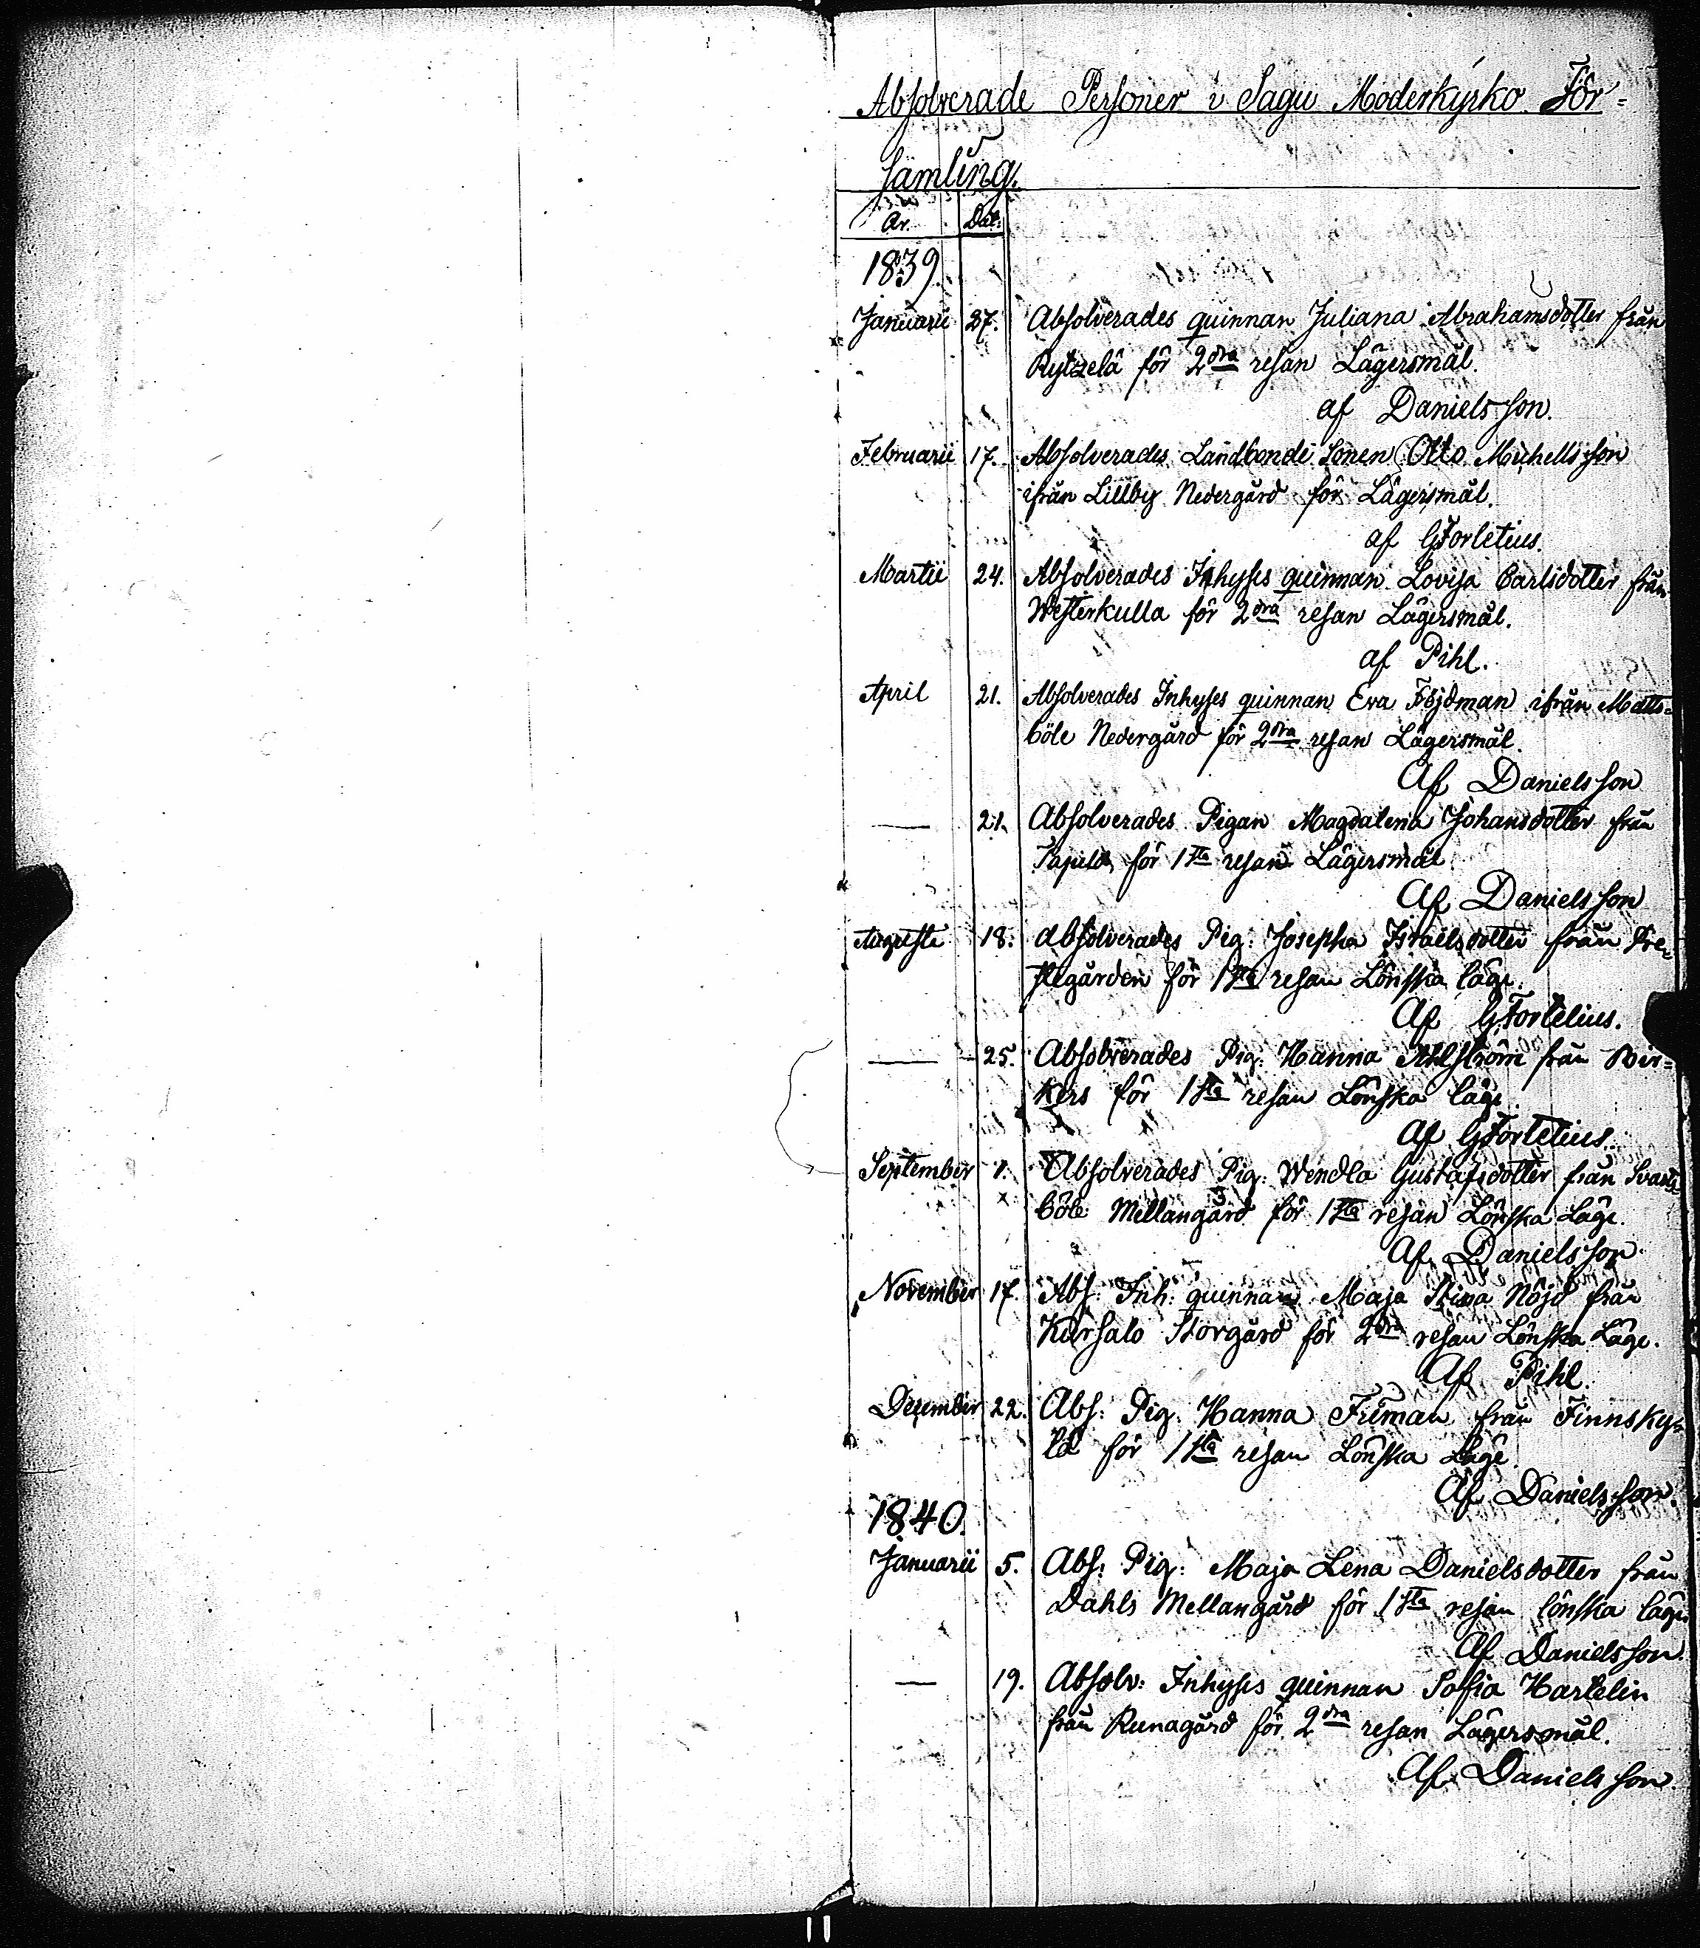 Absolverade Personer i Sagu Moderkyrko För-
samling.
År. Dat:
1839.
Januarii 27. Absolverades quinnan Juliana Abrahamsdotter från
Rytzelä för 2dra resan Lägersmål.
af Danielsson.
Februarii 17. Absolverades Landbonde Sonen Otto Michellsson
ifrån Lillby Nedergård för Lägersmål.
af GFortelius.
Martii 24. Absolverades Inhyses quinnan Lovisa Carlsdotter från
Westerkulla för 2dra resan Lägersmål.
af Pihl.
April 21. Absolverades Inhyses quinnan Eva Föjdman ifrån Matts-
böle Nedergård för 2dra resan Lägersmål.
Af Danielsson
— 21. Absolverades Pigan Magdalena Johansdotter från
för 1sta resan Lägersmål.
Af Danielsson
Augusti 18. Absolverades Pig: Josepha Israelsdotter från Pre-
stegården för 1sta resan Lönska läge.
Af GFortelius.
— 25. Absolverades Pig: Hanna Ahlström från Bir-
kers för 1sta resan Lönska läge
Af GFortelius.
September 1. Absolverades Pig: Wendla Gustafsdotter från Svarte
böle Mellangård för 1sta resan Lönska Läge.
Af Danielsson.
November 17. Abs: Inh: quinnan Maja Stina Nöjd från
Karsalo Storgård för 2dra resan Lönska Läge.
Af Pihl
December 22. Abs: Pig: Hanna Friman från Finnsky-
lä för 1sta resan Lönska Läge.
Af Danielsson.
1840.
Januarii 5. Abs: Pig: Maja Lena Danielsdotter från
Dahls Mellangård för 1sta resan lönska läge
Af Danielsson.
— 19. Absolv: Inhyses quinnan Sofia Hartelin
från Runagård för 2dra resan Lägersmål.
Af Danielsson